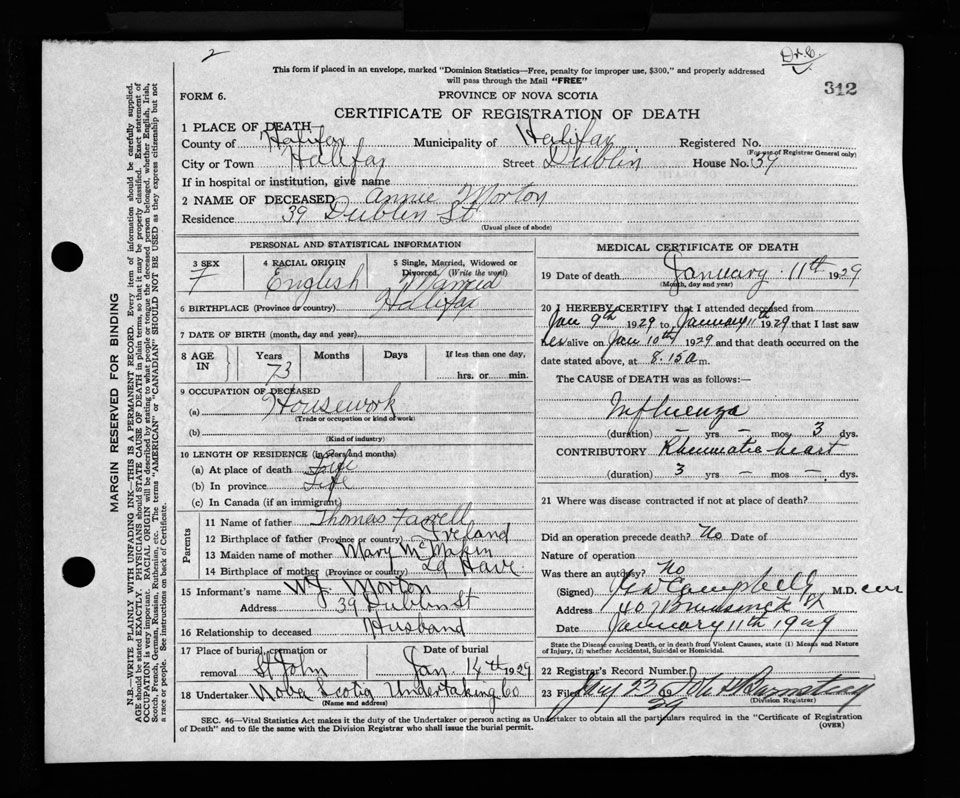 2
Dr. C.
312
This form if placed in an envelope, marked "Dominion Statistics—Free, penalty for improper use, $300," and properly addressed
will pass through the Mail "FREE"
FORM 6.
PROVINCE OF NOVA SCOTIA
CERTIFICATE OF REGISTRATION OF DEATH
1 PLACE OF DEATH
County of Halifax Municipality of Halifax Registered No.
(For use of Registrar General only)
City or Town Halifax Street Dublin House No. 39
If in hospital or institution, give name
2 NAME OF DECEASED Annie Morton
Residence 39 Dublin St
(Usual place of abode)
PERSONAL AND STATISTICAL INFORMATION
3 SEX F
4 RACIAL ORIGIN English
5 Single, Married, Widowed or Divorced, (Write the word) Married
6 BIRTHPLACE (Province or country) Halifax
7 DATE OF BIRTH (month, day and year)
8 AGE IN Years 73 Months Days If less than one day, hrs. or min.
9 OCCUPATION OF DECEASED
(a) Housework
(Trade or occupation or kind of work)
(b)
(Kind of industry)
10 LENGTH OF RESIDENCE (in years and months)
(a) At place of death Life
(b) In province Life
(c) In Canada (if an immigrant)
Parents
11 Name of father Thomas Farrell
12 Birthplace of father (Province or country) Ireland
13 Maiden name of mother Mary
14 Birthplace of mother (Province or country) La Have
15 Informant's name W.J. Morton
Address 39 Dublin St
16 Relationship to deceased Husband
17 Place of burial, cremation or removal St John
Date of burial Jan 14th 1929
18 Undertaker Nova Scotia Undertaking Co
(Name and address)
MEDICAL CERTIFICATE OF DEATH
19 Date of death January 11th 1929
(Month, day and year)
20 I HEREBY CERTIFY that I attended deceased from
Jan 9th 1929 to January 11th 1929 that I last saw
her alive on Jan 10th 1929 and that death occurred on the
date stated above, at 8.15 a m.
The CAUSE of DEATH was as follows:—
Influenza
(duration) – yrs – mos 3 dys.
CONTRIBUTORY Rheumatic heart
(duration) 3 yrs – mos – dys.
21 Where was disease contracted if not at place of death?
Did an operation precede death? No Date of
Nature of operation
Was there an autopsy? No
(Signed) Campbell M.D.
Address 407 Brunswick
Date January 11th 1929
State the Disease causing Death, or in death from Violent Causes, state (1) Means and Nature
of Injury, (2) whether Accidental, Suicidal or Homicidal.
22 Registrar's Record Number
23 Filed 23 19 29
(Division Registrar)
SEC. 46—Vital Statistics Act makes it the duty of the Undertaker or person acting as Undertaker to obtain all the particulars required in the "Certificate of Registration
of Death" and to file the same with the Division Registrar who shall issue the burial permit.
(OVER)
MARGIN RESERVED FOR BINDING
N.B.—WRITE PLAINLY WITH UNFADING INK—THIS IS A PERMANENT RECORD. Every item of information should be carefully supplied.
AGE should be stated EXACTLY. PHYSICIANS should STATE CAUSE OF DEATH in plain terms, so that it may be properly classified. Exact statement of
OCCUPATION is very important. RACIAL ORIGIN will be described by stating to what people or tongue the deceased person belonged, whether English, Irish,
Scotch, French, German, Russian, Ruthenian, etc. The terms "AMERICAN" or "CANADIAN" SHOULD NOT BE USED as they express citizenship but not
a race or people. See instructions on back of Certificate.